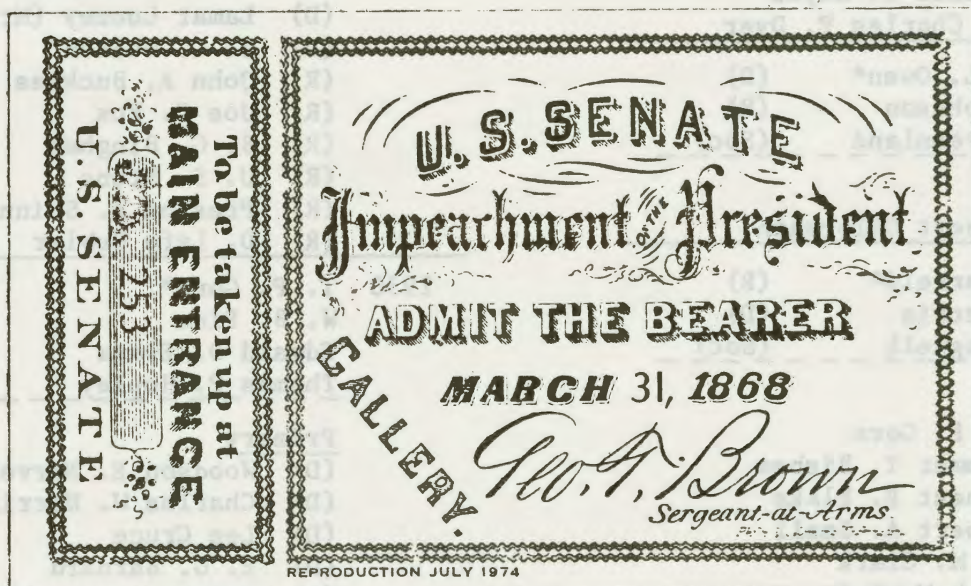 To be taken up at
MAIN ENTRANCE
253
U.S. SENATE
U. S. SENATE
Impeachment OF THE President
ADMIT THE BEARER
MARCH 31, 1868
GALLERY.
Geo. T. Brown
Sergeant-at-Arms.
REPRODUCTION JULY 1974